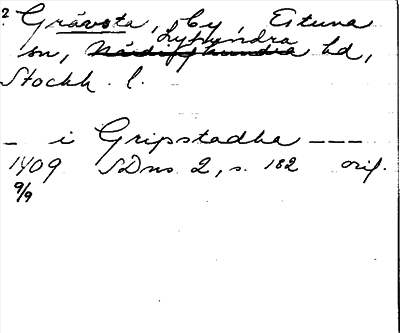 ? Grävsta, by, Estuna
Lyhundra
sn, Närdinghundra hd,
Stockh. l.
_ i Gripstadha ---
1409 SDns 2, s. 182 orig.
9/9